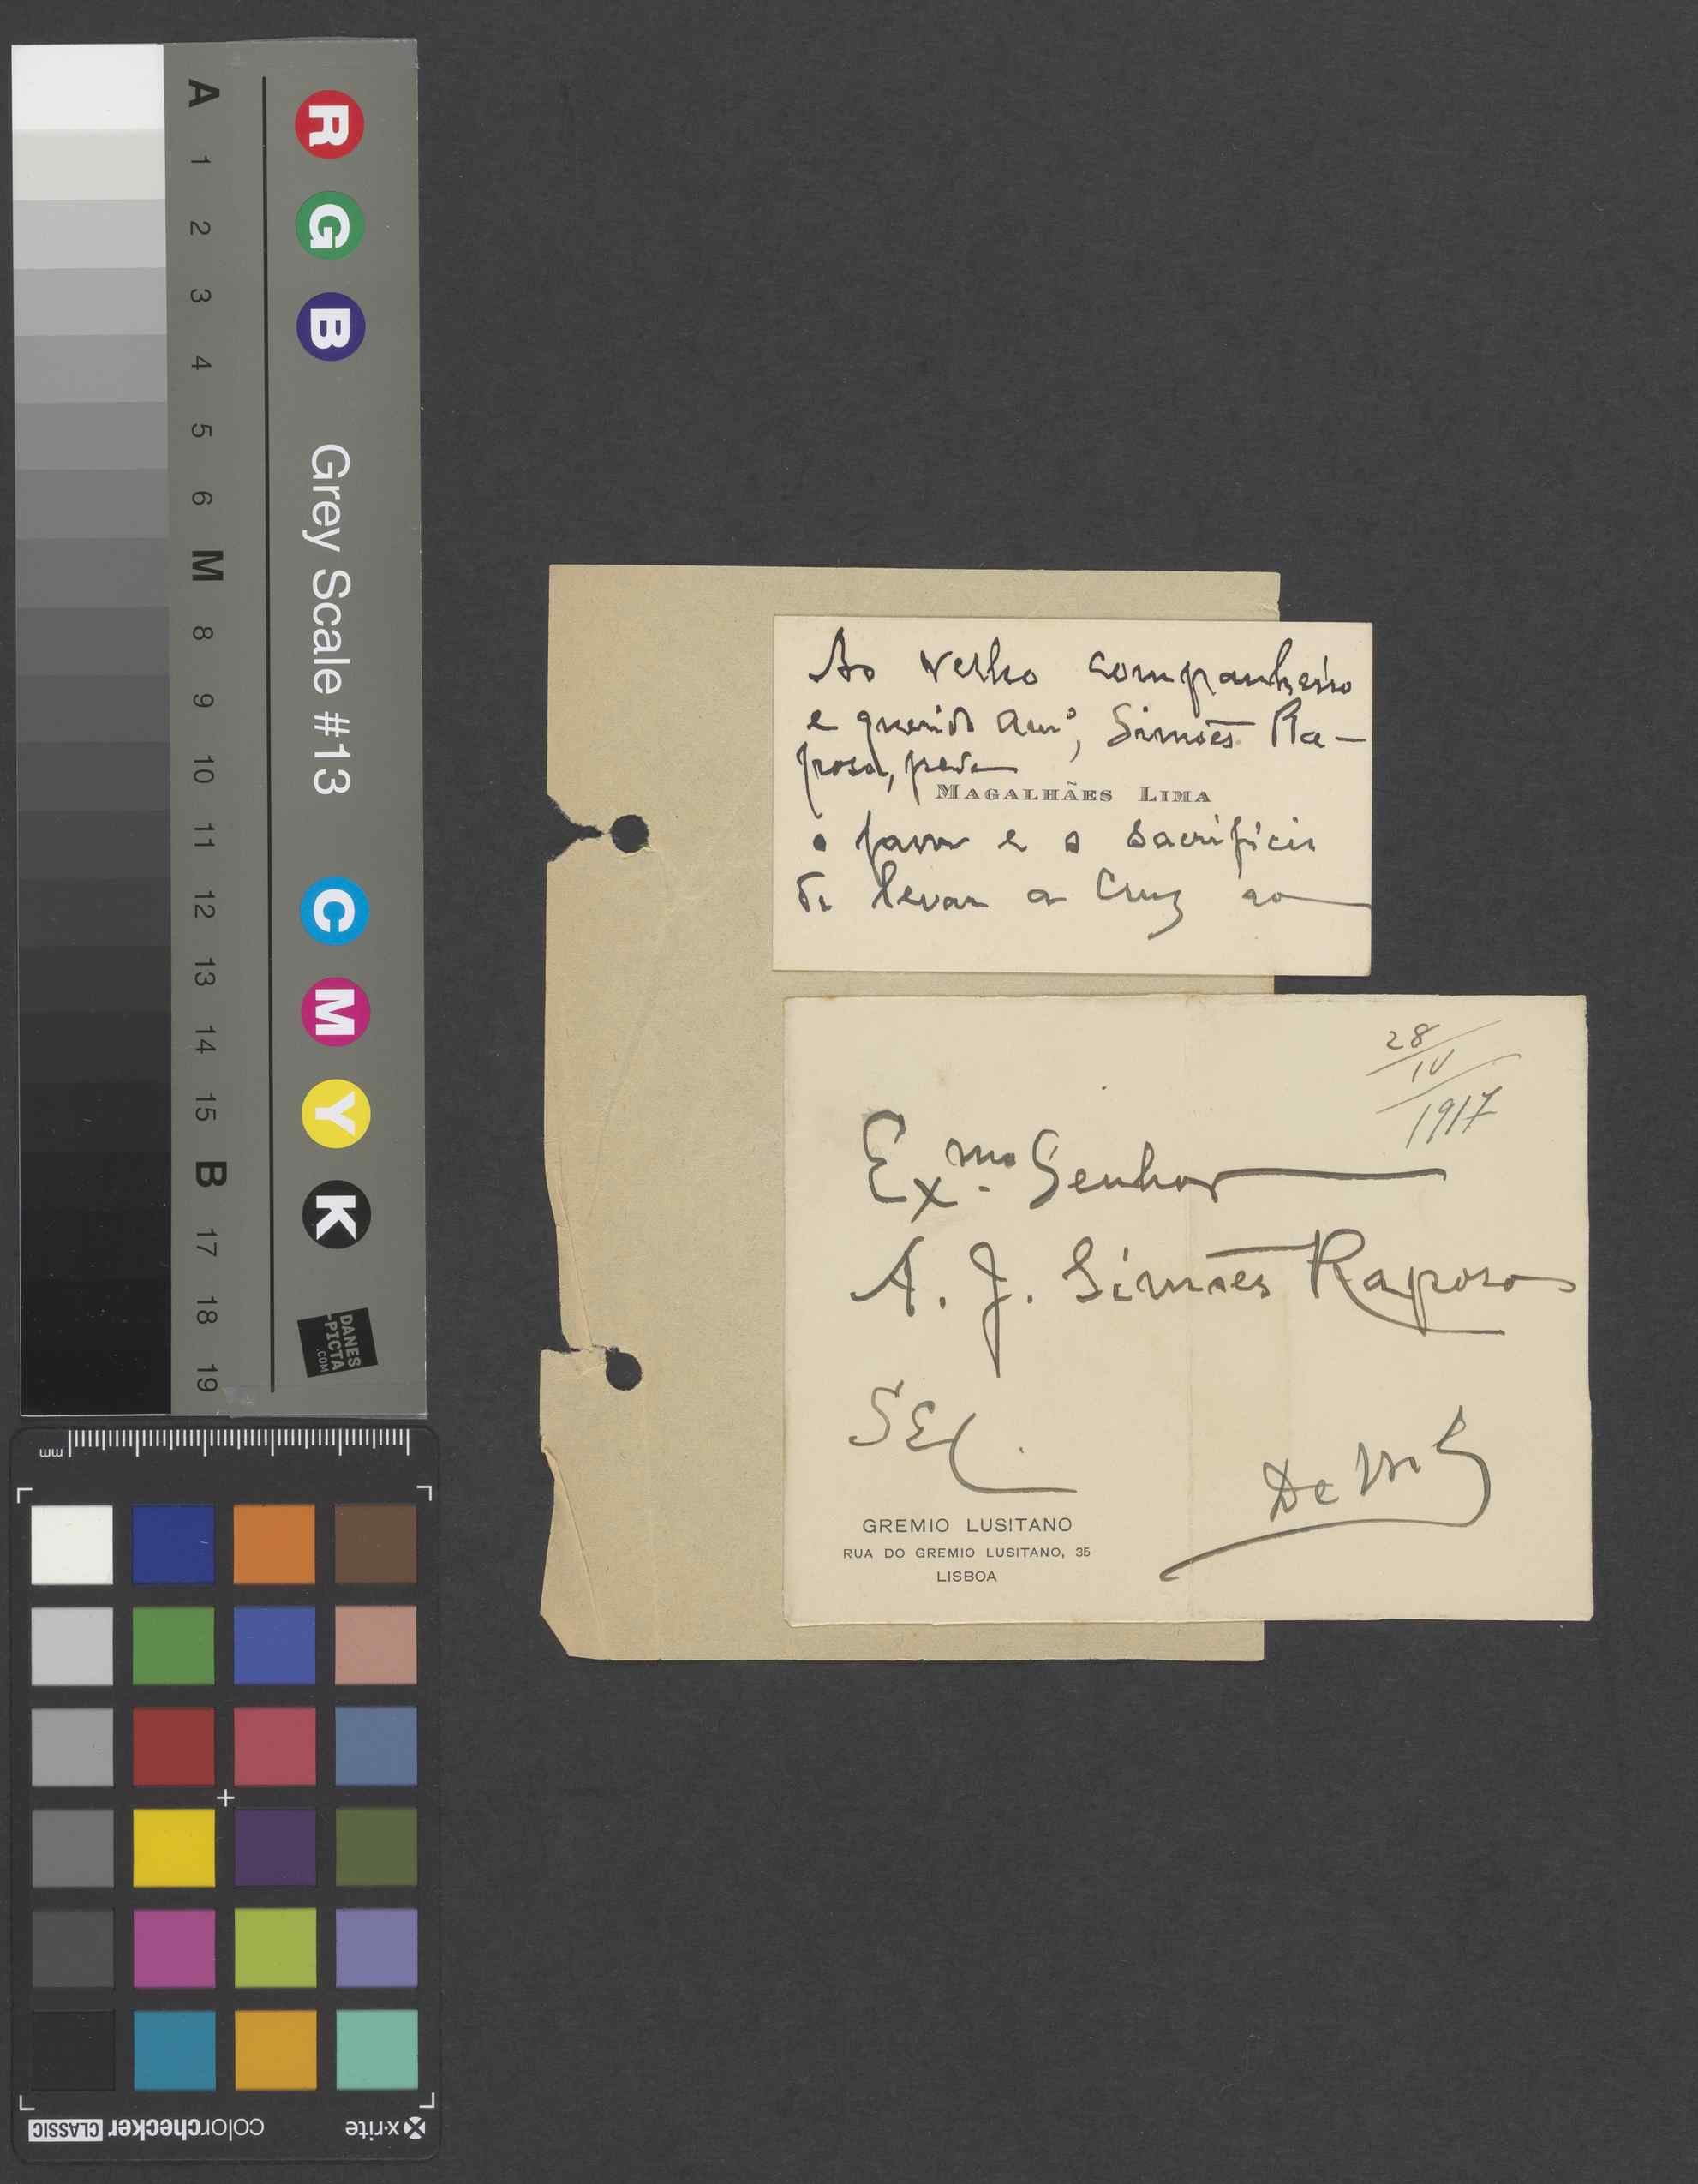 A
1
2
3
4
5
6
M
8
9
10
11
12
13
14
15
B
17
18
19
R
G
B
Grey Scale #13
C
M
Y
K
DANES
-PICTA
.COM
mm
x-rite
colorchecker CLASSIC
Ao velho companheiro
e querido Amº, Simões Ra-
poso, pede
MAGALHÃES LIMA
o favor e o sacrificio
de levar a Cruz ao
28
IV
1917
Exmo. Senhor
A. J. Simões Raposo
GREMIO LUSITANO
RUA DO GREMIO LUSITANO, 35
LISBOA